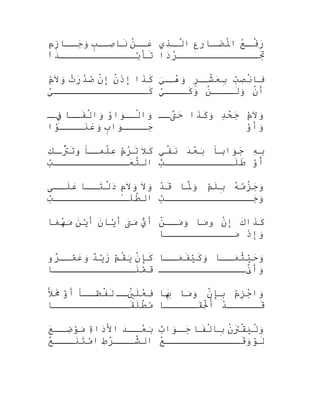 رَفْعُ المُضَارِعِ الَّذِي عَنْ نَاصِبٍ وَجَازِمِ
تَجَرُّدَا تَأَبَّدَا
فَانْصِبْ بِعَشْرٍ وَهْيَ كَذَا إِذَنْ إِنْ صُدِّرَتْ وَلاَمُ
أَنْ وَلَنْ وَكَيْ كَيْ
وَلاَمُ جَحْدٍ وَكَذَا حَتَّى وَالْوَاوُ وَالْفَا فِي
وَأَوْ جَوَابٍ وَعَنَوْا
بِهِ جَوَاباً بَعْدَ نَفْيٍ كَلاَ تَرُمْ عِلْماً وَتَتْرُكَ
أَوْ طَلَبْ التَّعَبْ
وَجَزْمُهُ بِلَمْ وَلَمَّا قَدْ وَلاَ وَلاَمٍ دَلَّتَا عَلَى
وَجَبْ الطَّلَبْ
كَذَاكَ إِنْ ومَا وَمَنْ أَيُّ مَتَى أَيَّانَ أَيْنَ مَهْمَا
وَإِذْ مَا
وَحَيْثُمَا وَكَيْفَمَا كَإِنْ يَقُمْ زَيْدٌ وَعَمْرٌو
وَأَنَّى قُمْنَا
وَاجْزِمْ بِإِنْ وَمَا بِهَا فِعْلَيْنِ لَفْظاً أَوْ مَحَلاًّ
قَدْ أُلْحِقَا مُطْلَقَا
وَلْيَقْتَرِنْ بِالْفَا جَوَابٌ بَعْدَ الأَدَاةِ مَوْضِعَ
لَوْ وَقَعْ الشَّرْطِ امْتَنَعْ